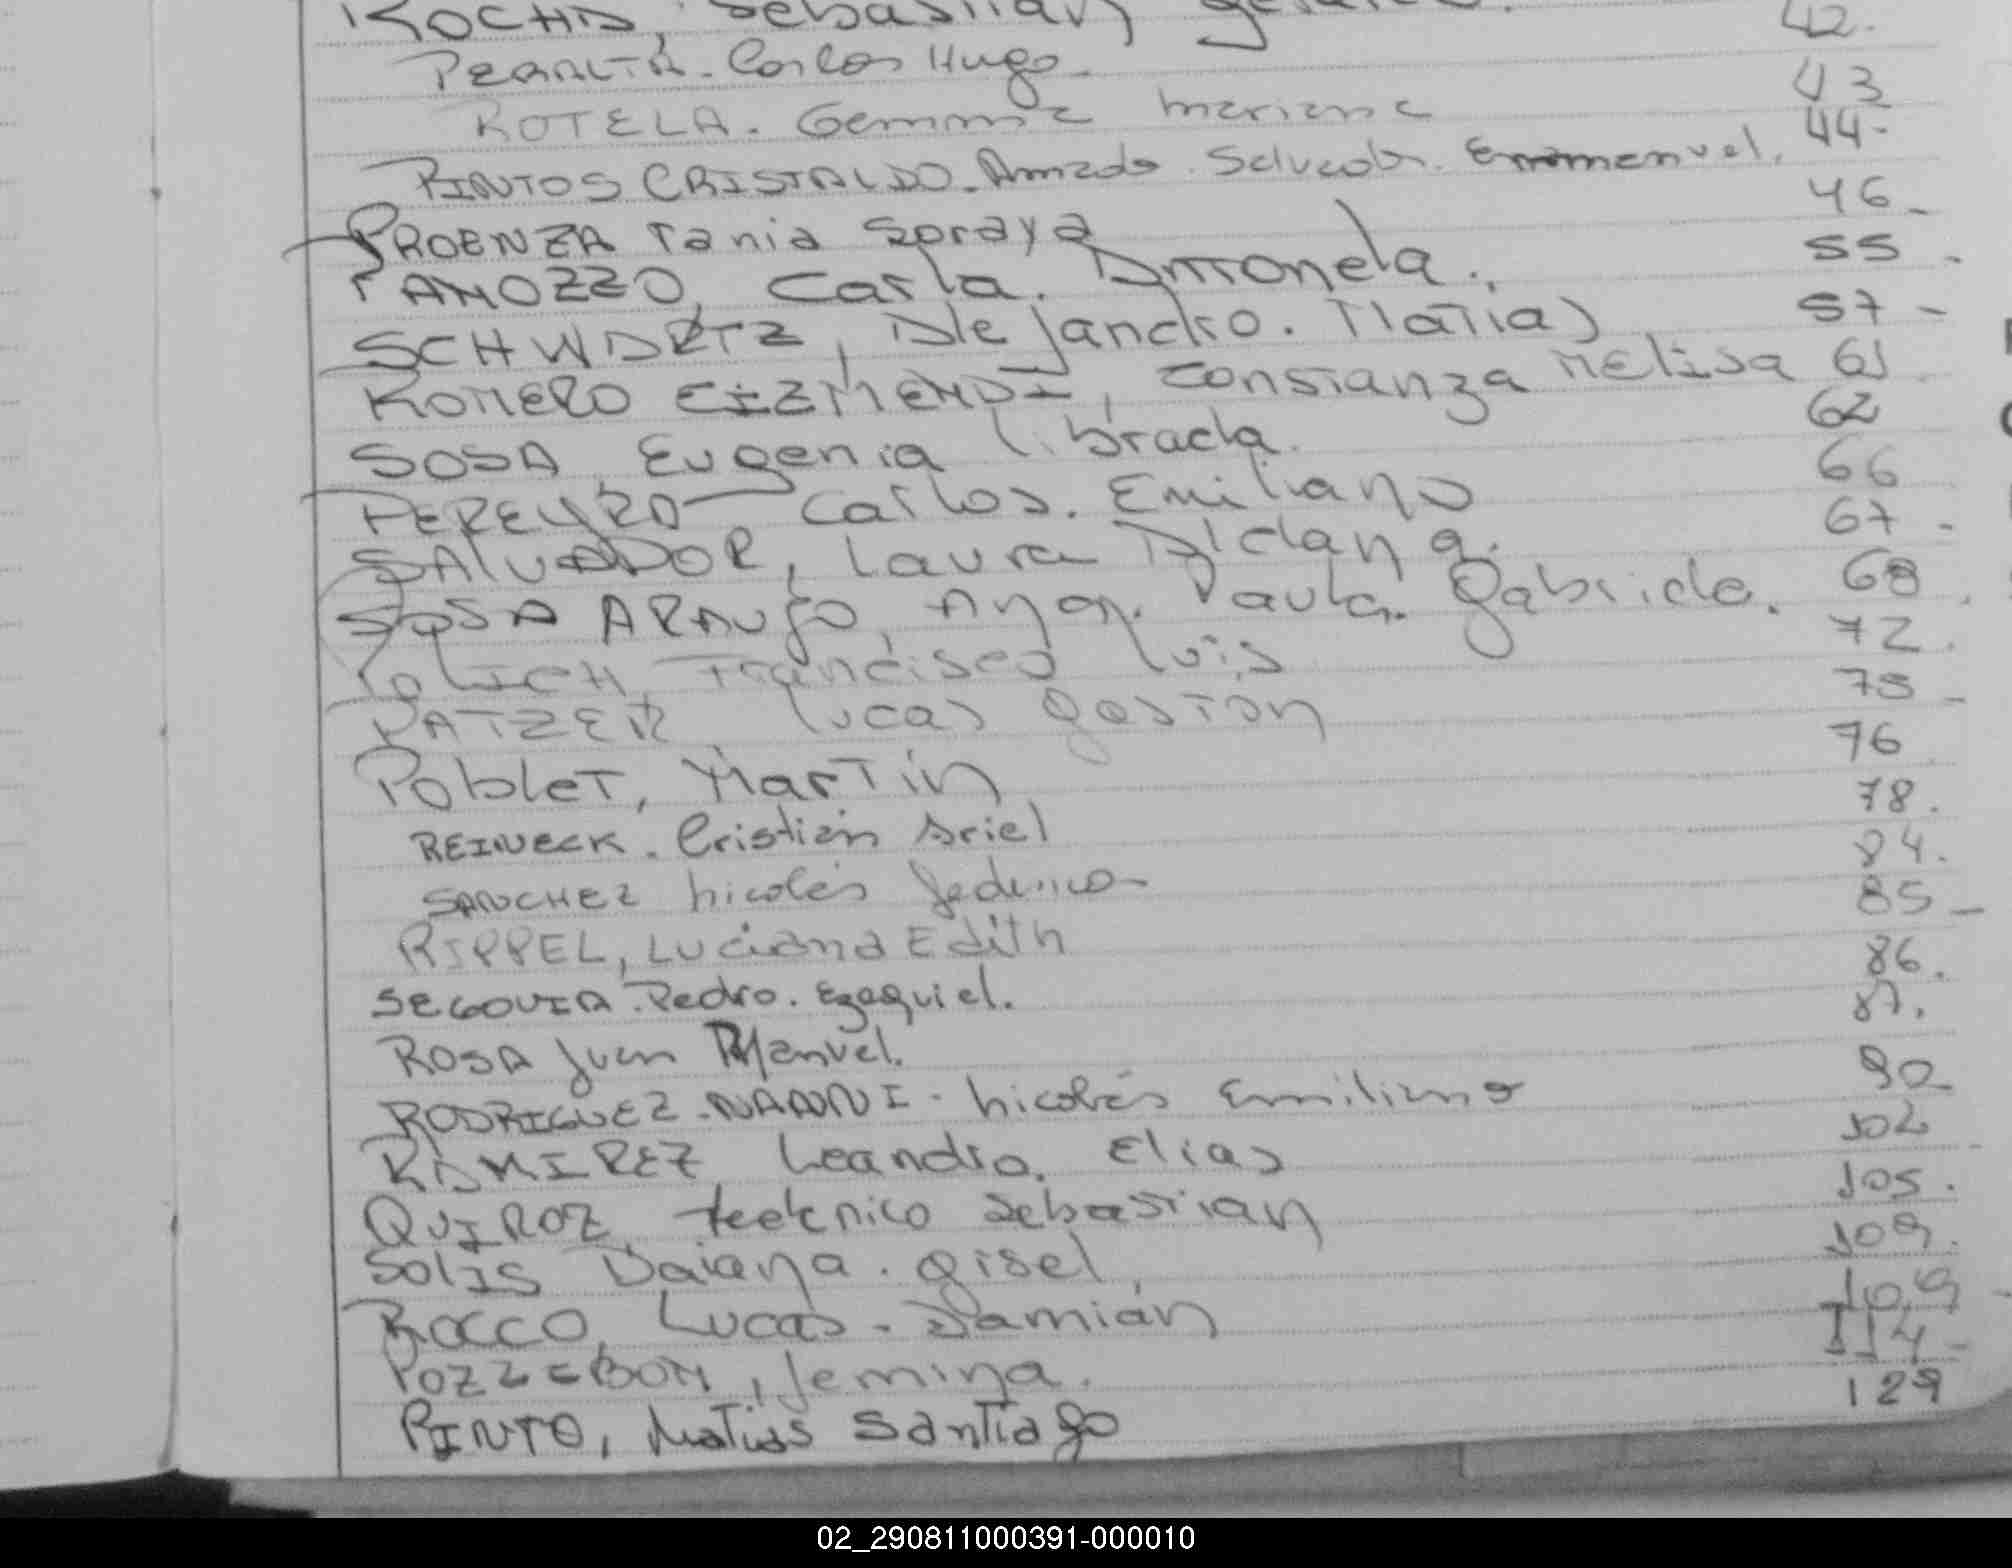 ROCHA, Sebastián 42.
PERALTA. Carlos Hugo. 43
ROTELA. Gemma Mariana 44-
PINTOS CRISTALDO. Amado. Salvador. Emmanuel. 46-
PROENZA Tania Soraya 55.
PAMOZZO, Carla. Antonela. 57-
SCHWARTZ, Alejandro. Matias 61
ROMERO EIZMENDI, Constanza Melisa 62
SOSA Eugenia Librada. 66
PEREYRA Carlos. Emiliano 67-
SALVADOR, Laura Aldana. 68.
SOSA ARAUJO, Ana. Paula. Gabriela. 72.
POLICH, Francisco Luis 75-
PATZER Lucas Gastón 76
Poblet, Martín 78.
REINECK. Cristián Ariel 84.
SANCHEZ Nicolás Federico- 85-
RIPPEL, Luciana Edith 86.
SEGOVIA. Pedro. Ezequiel. 87.
ROSA Juan Manuel. 90
RODRIGUEZ-NANNI. Nicolás Emiliano 102
RAMIREZ Leandro. Elias 105.
QUIROZ, Sebastian 109.
SOLIS Daiana. Gisel, 109
ROCCO, Lucas. Damián 114-
POZZEBON, Jemina. 129
PINTO, Matias Santiago